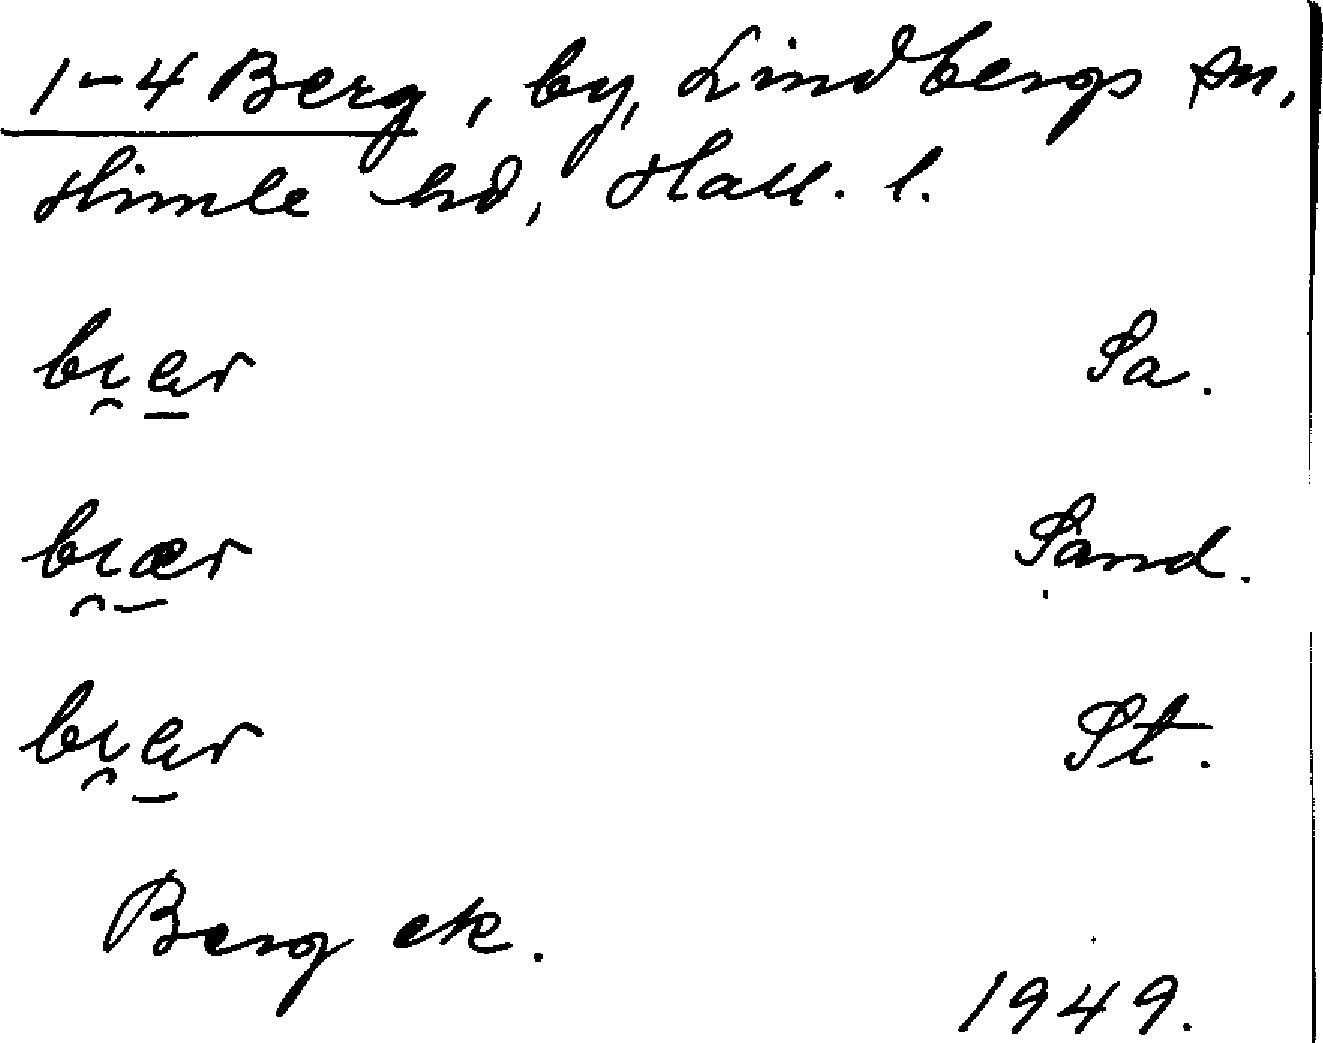 1-4 Berg, by, Lindbergs sn,
Himle hd, Hall. l.
bı̯a̠r Sa.
bı̯æ̠r Sand.
bı̯a̠r St.
Berg ek.
1949.